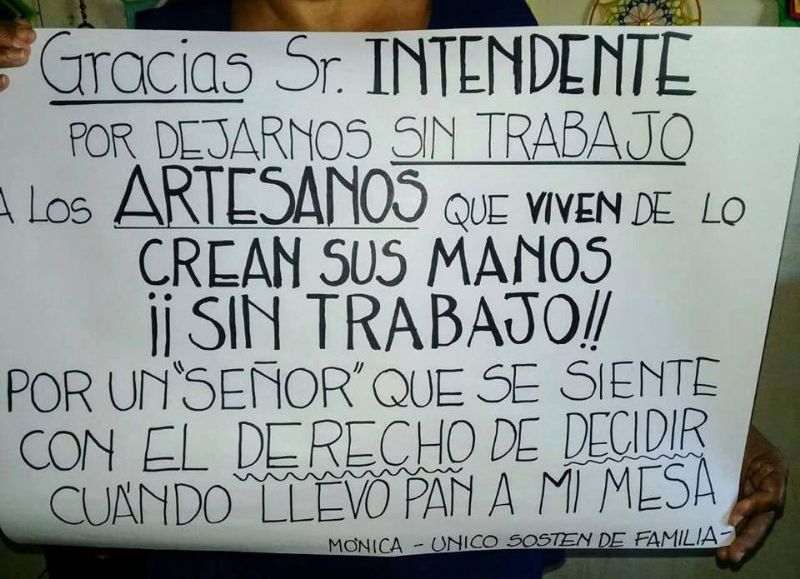 Gracias Sr. INTENDENTE
POR DEJARNOS SIN TRABAJO
A LOS ARTESANOS QUE VIVEN DE LO
CREAN SUS MANOS
¡¡SIN TRABAJO!!
POR UN "SEÑOR" QUE SE SIENTE
CON EL DERECHO DE DECIDIR
CUÁNDO LLEVO PAN A MI MESA
MÓNICA - UNICO SOSTEN DE FAMILIA -